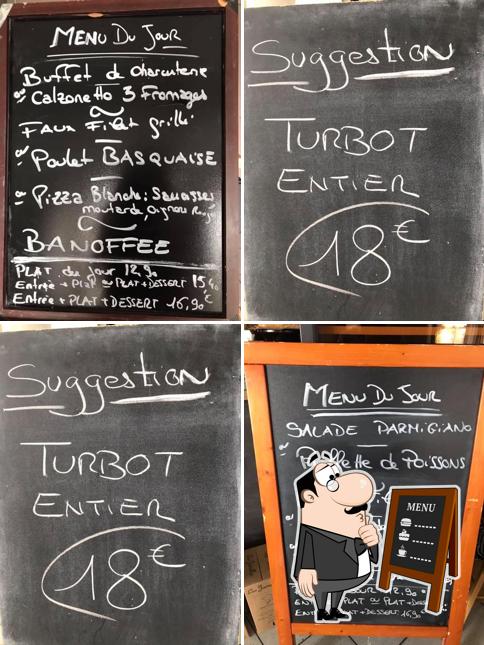 MENU DU JOUR
Buffet de charcuterie
ou Calzonetto 3 Fromages
FAUX Filet grillé
ou Poulet BASQUAISE
ou Pizza Blanche: Saucisses
moutarde, oignons Rouges
BANOFFEE
PLAT du jour 12,90
Entrée + Plat ou PLAT + DESSERT 15,40
Entrée + PLAT + DESSERT 16,90€
Suggestion
TURBOT
ENTIER
18€
Suggestion
TURBOT
ENTIER
18€
MENU DU JOUR
SALADE PARMIGIANO
de Poissons
MENU
JOUR 12,90
PLAT ou PLAT + DESS
+ DESSERT 16,90€